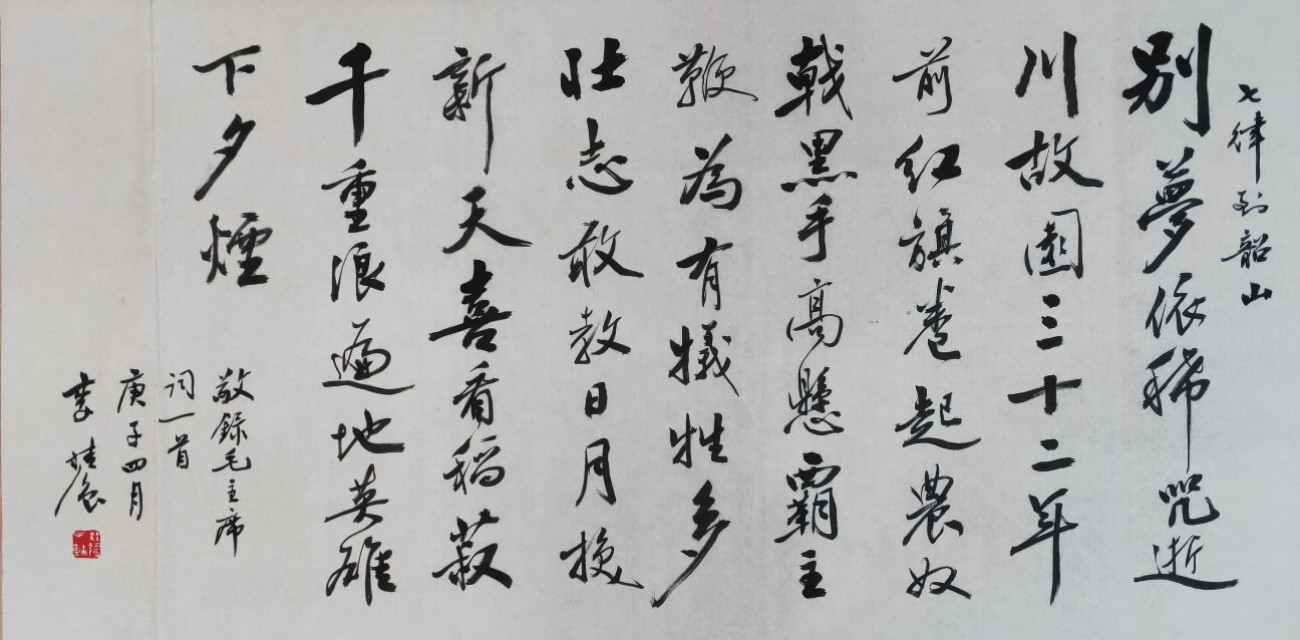 七律 到韶山
别夢依稀咒逝
川故園三十二年
前红旗卷起農奴
戟黑手高懸霸主
鞭為有犧牲多
壮志敢教日月換
新天喜看稻菽
千重浪遍地英雄
下夕煙
敬錄毛主席
词一首
庚子四月
李